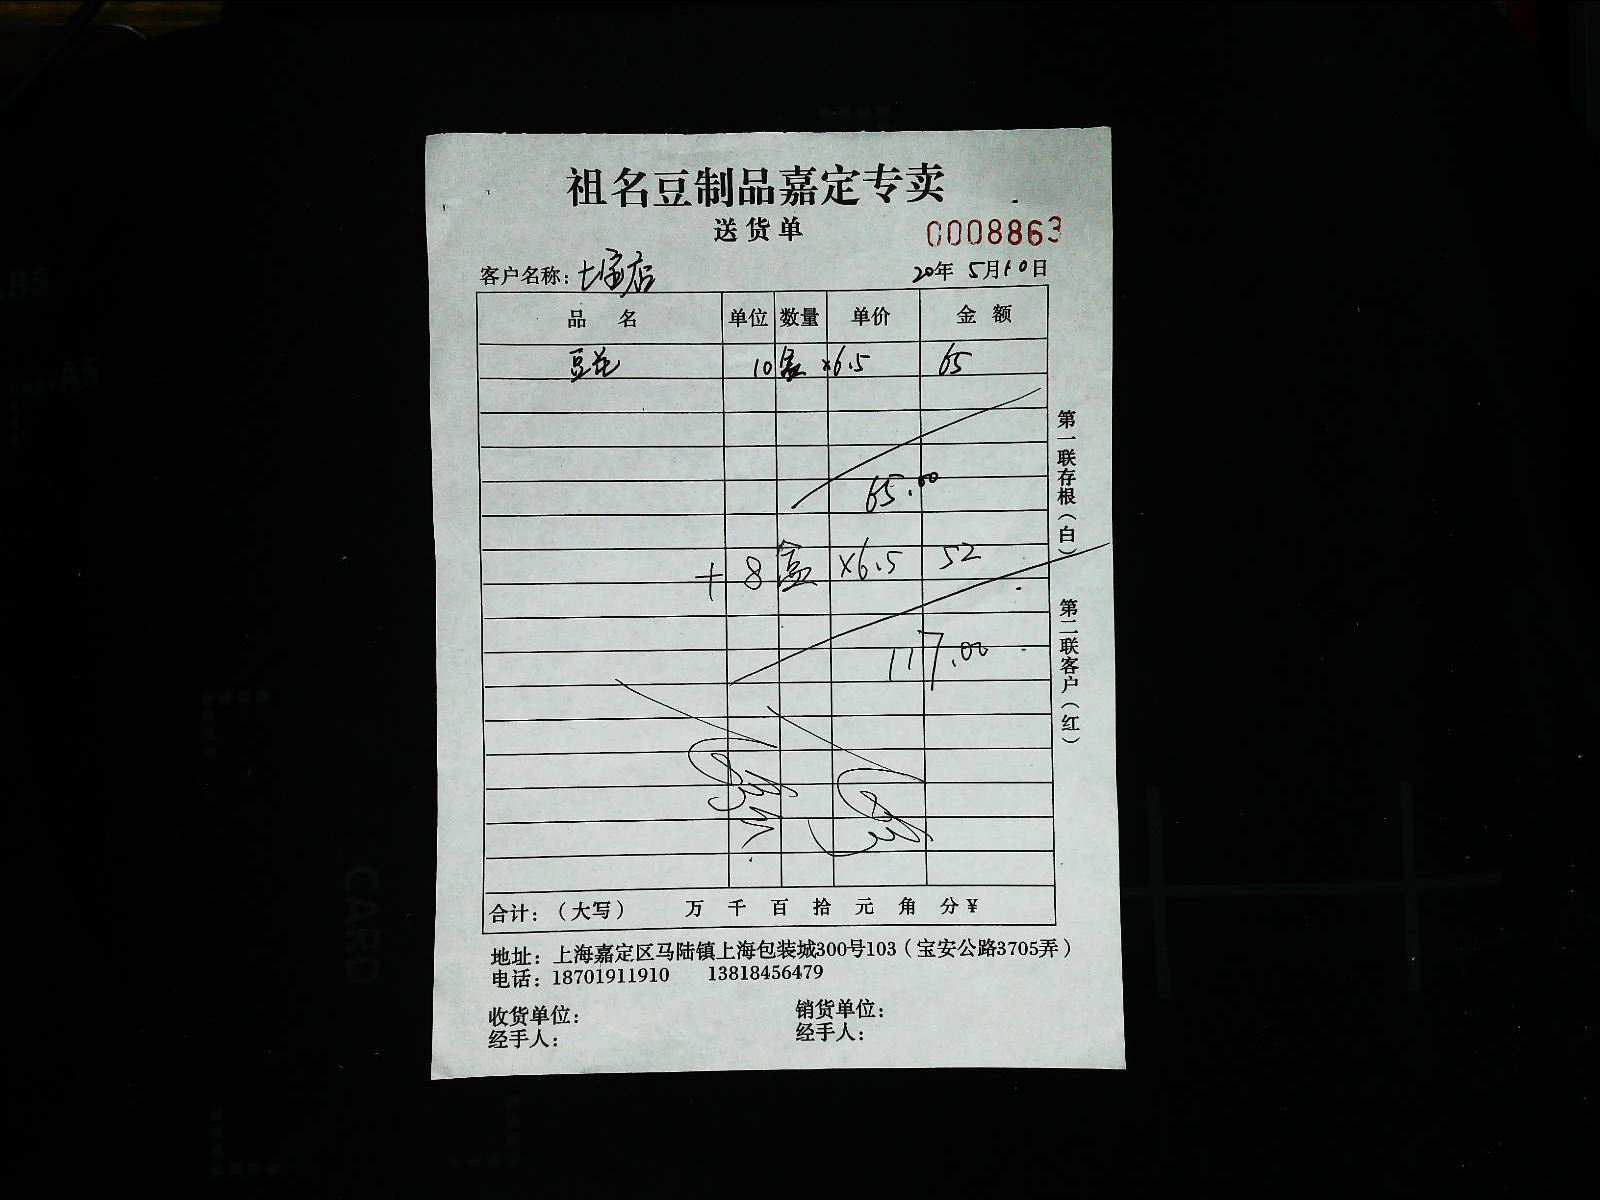 祖名豆制品嘉定专卖
送货单
0008863
客户名称：
20年 5月10日
品 名 单位 数量 单价 金 额
豆花 10盒 ×6.5 65
65.00
+ 8盒 ×6.5 52
117.00
合计：（大写） 万 千 百 拾 元 角 分¥
地址：上海嘉定区马陆镇上海包装城300号103（宝安公路3705弄）
电话：18701911910 13818456479
收货单位： 销货单位：
经手人： 经手人：
第一联存根（白）
第二联客户（红）
B5
A5
CARD